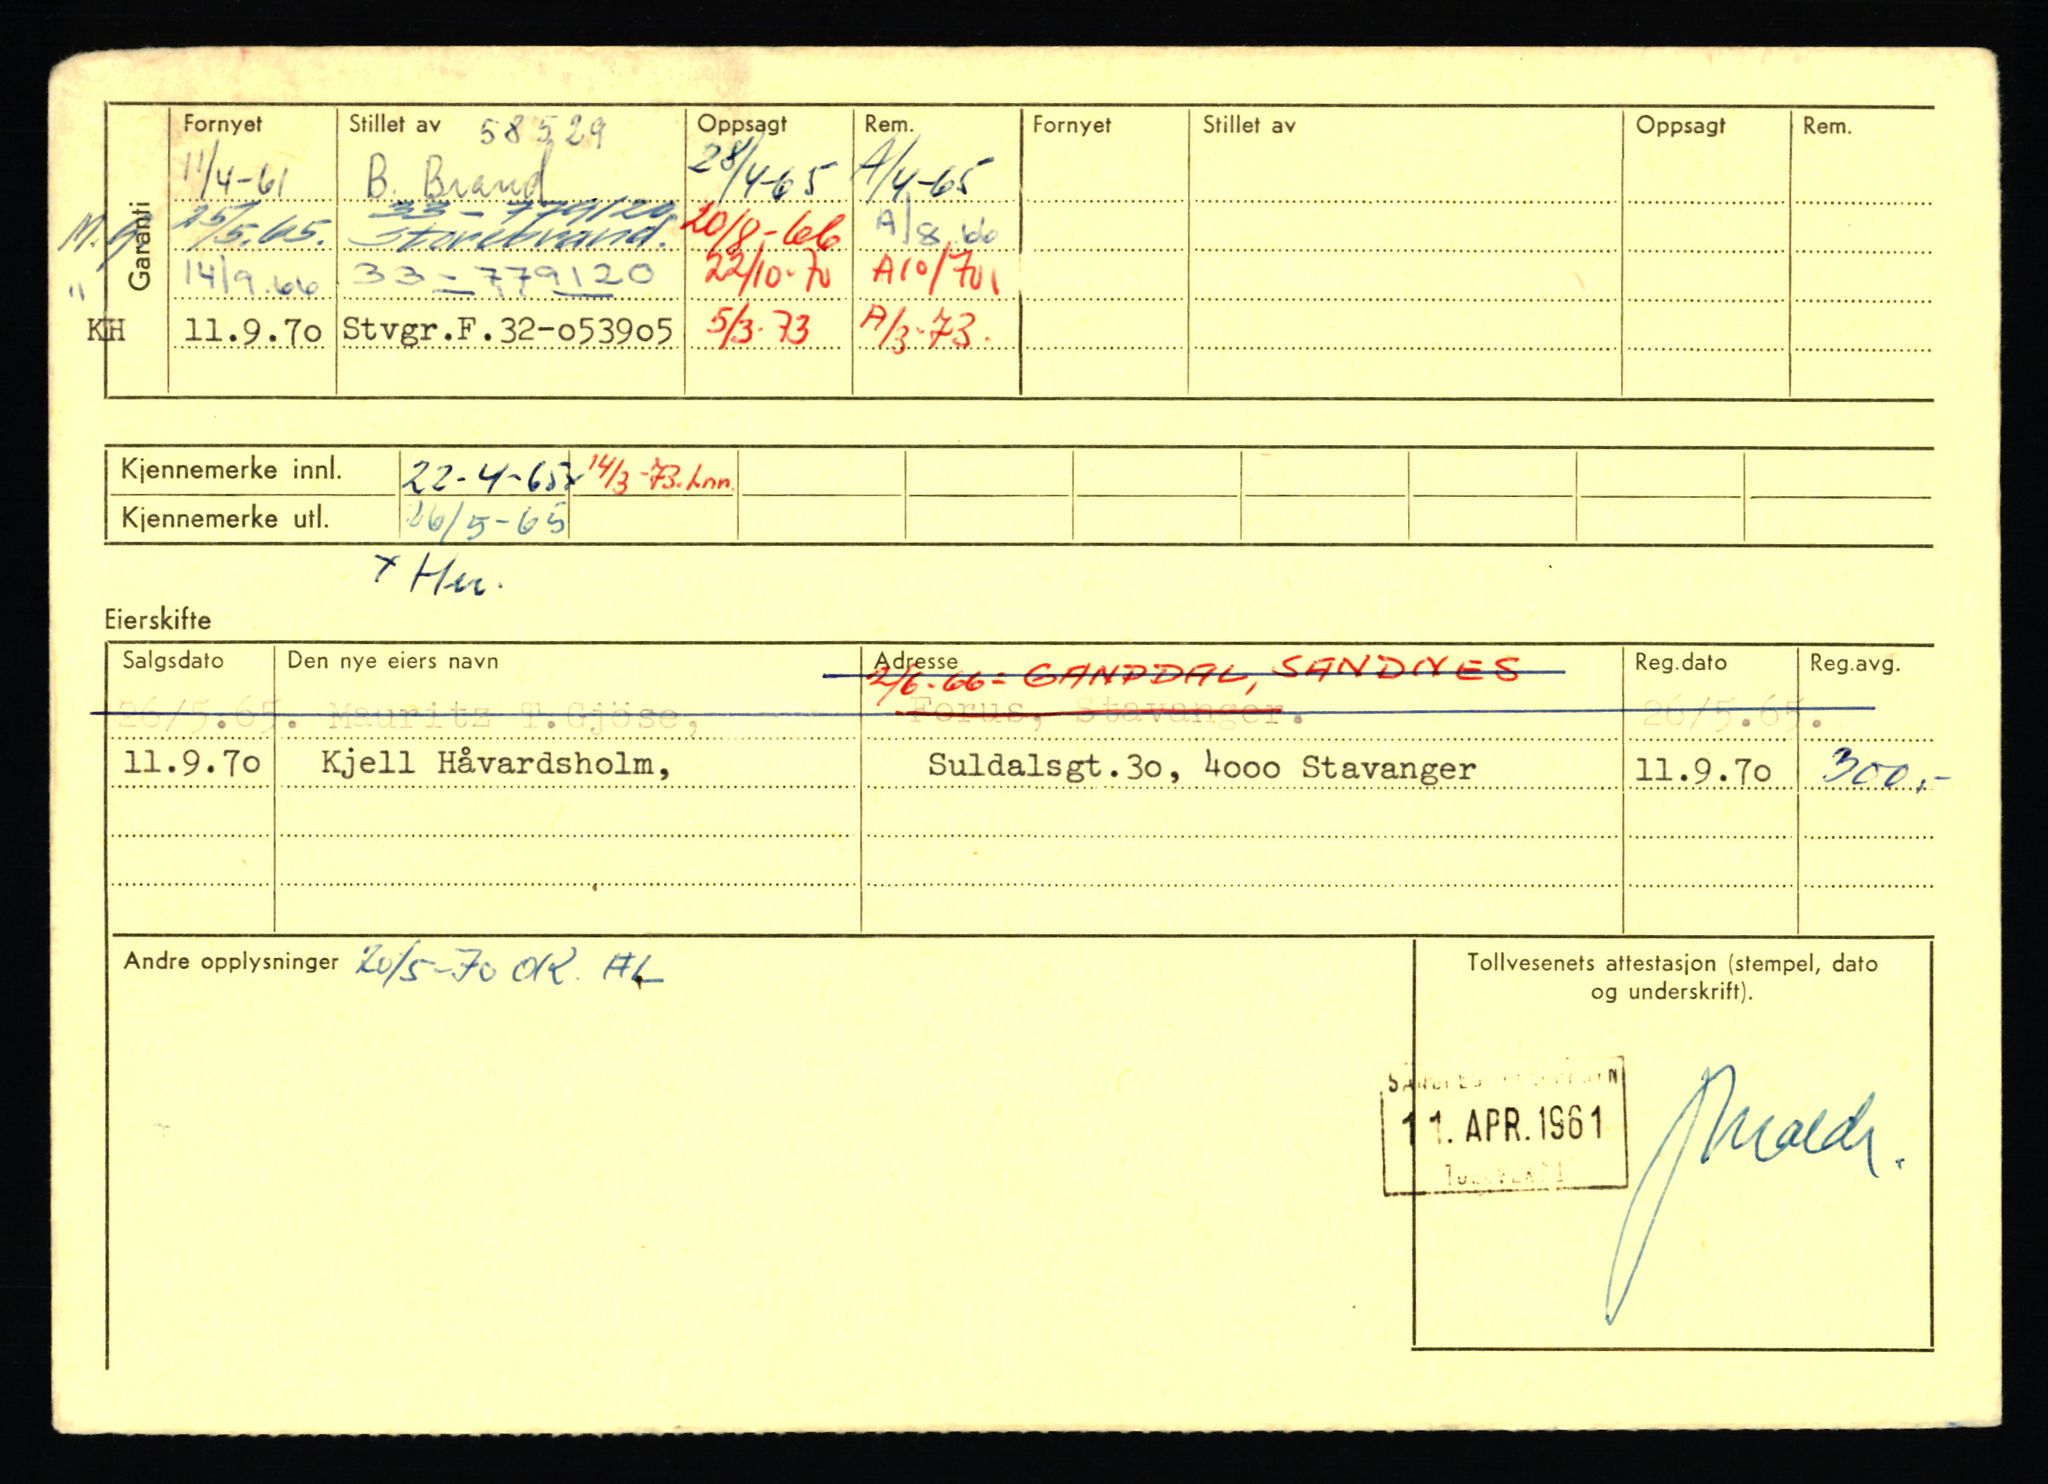 Fornyet Stillet av 58529 Oppsagt Rem. Fornyet Stillet av Oppsagt Rem.
Garanti
11/4-61 B. Brand 28/4-65 A/4-65
33-779120
M.G 25/5.65. Storebrand. 20/8-66 A/8.66
" 14/9.66 33-779120 22/10-70 A10/70
KH 11.9.7o Stvgr.F.32-o539o5 5/3-73 A/3-73.
Kjennemerke innl. 22-4-65x 14/3-73.
Kjennemerke utl. 26/5-65
x
Eierskifte
Salgsdato Den nye eiers navn Adresse Reg.dato Reg.avg.
2/6-66= GANDDAL, SANDNES
26/5.65. Mauritz T.Gjöse, Forus, Stavanger. 26/5.65.
11.9.7o Kjell Håvardsholm, Suldalsgt.3o, 4ooo Stavanger 11.9.7o 300,-
Andre opplysninger 20/5-70 OK. HL
Tollvesenets attestasjon (stempel, dato
og underskrift).
11. APR. 1961